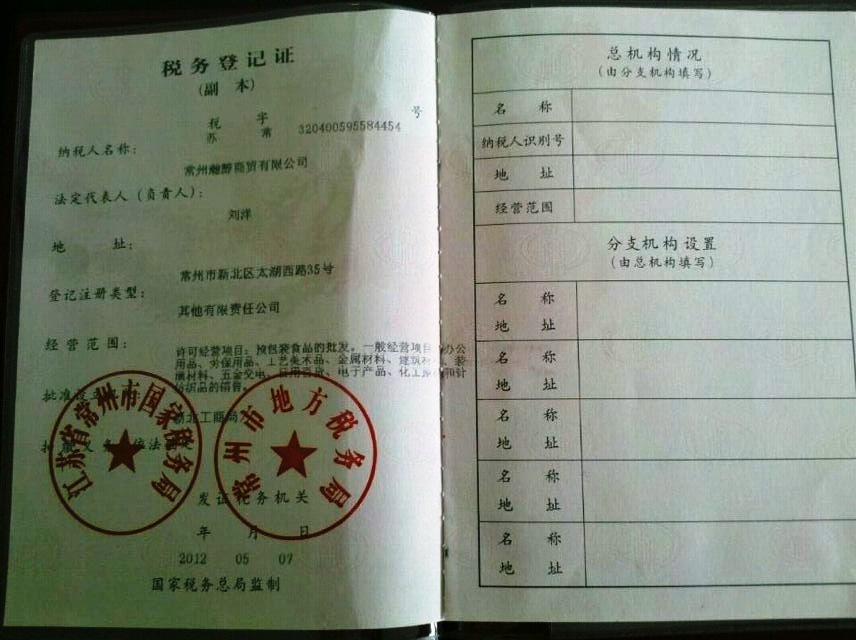 税务登记证
(副 本)
税 字 号
苏 常 320400595584454
纳税人名称:
常州 商贸有限公司
法定代表人(负责人):
刘洋
地 址:
常州市新北区太湖西路35号
登记注册类型:
其他有限责任公司
经营范围:
许可经营项目:预包装食品的批发。一般经营项目 办公
用品、劳保用品、工艺美术品、金属材料、建筑材料、装
潢材料、五金交电、日用百货、电子产品、化工原料和针
纺织品的销售。
批准设立
新北工商局
江苏省常州市国家税务局
常州市地方税务局
发证税务机关
年 月 日
2012 05 07
国家税务总局监制
总机构情况
(由分支机构填写)
名 称
纳税人识别号
地 址
经营范围
分支机构设置
(由总机构填写)
名 称
地 址
名 称
地 址
名 称
地 址
名 称
地 址
名 称
地 址